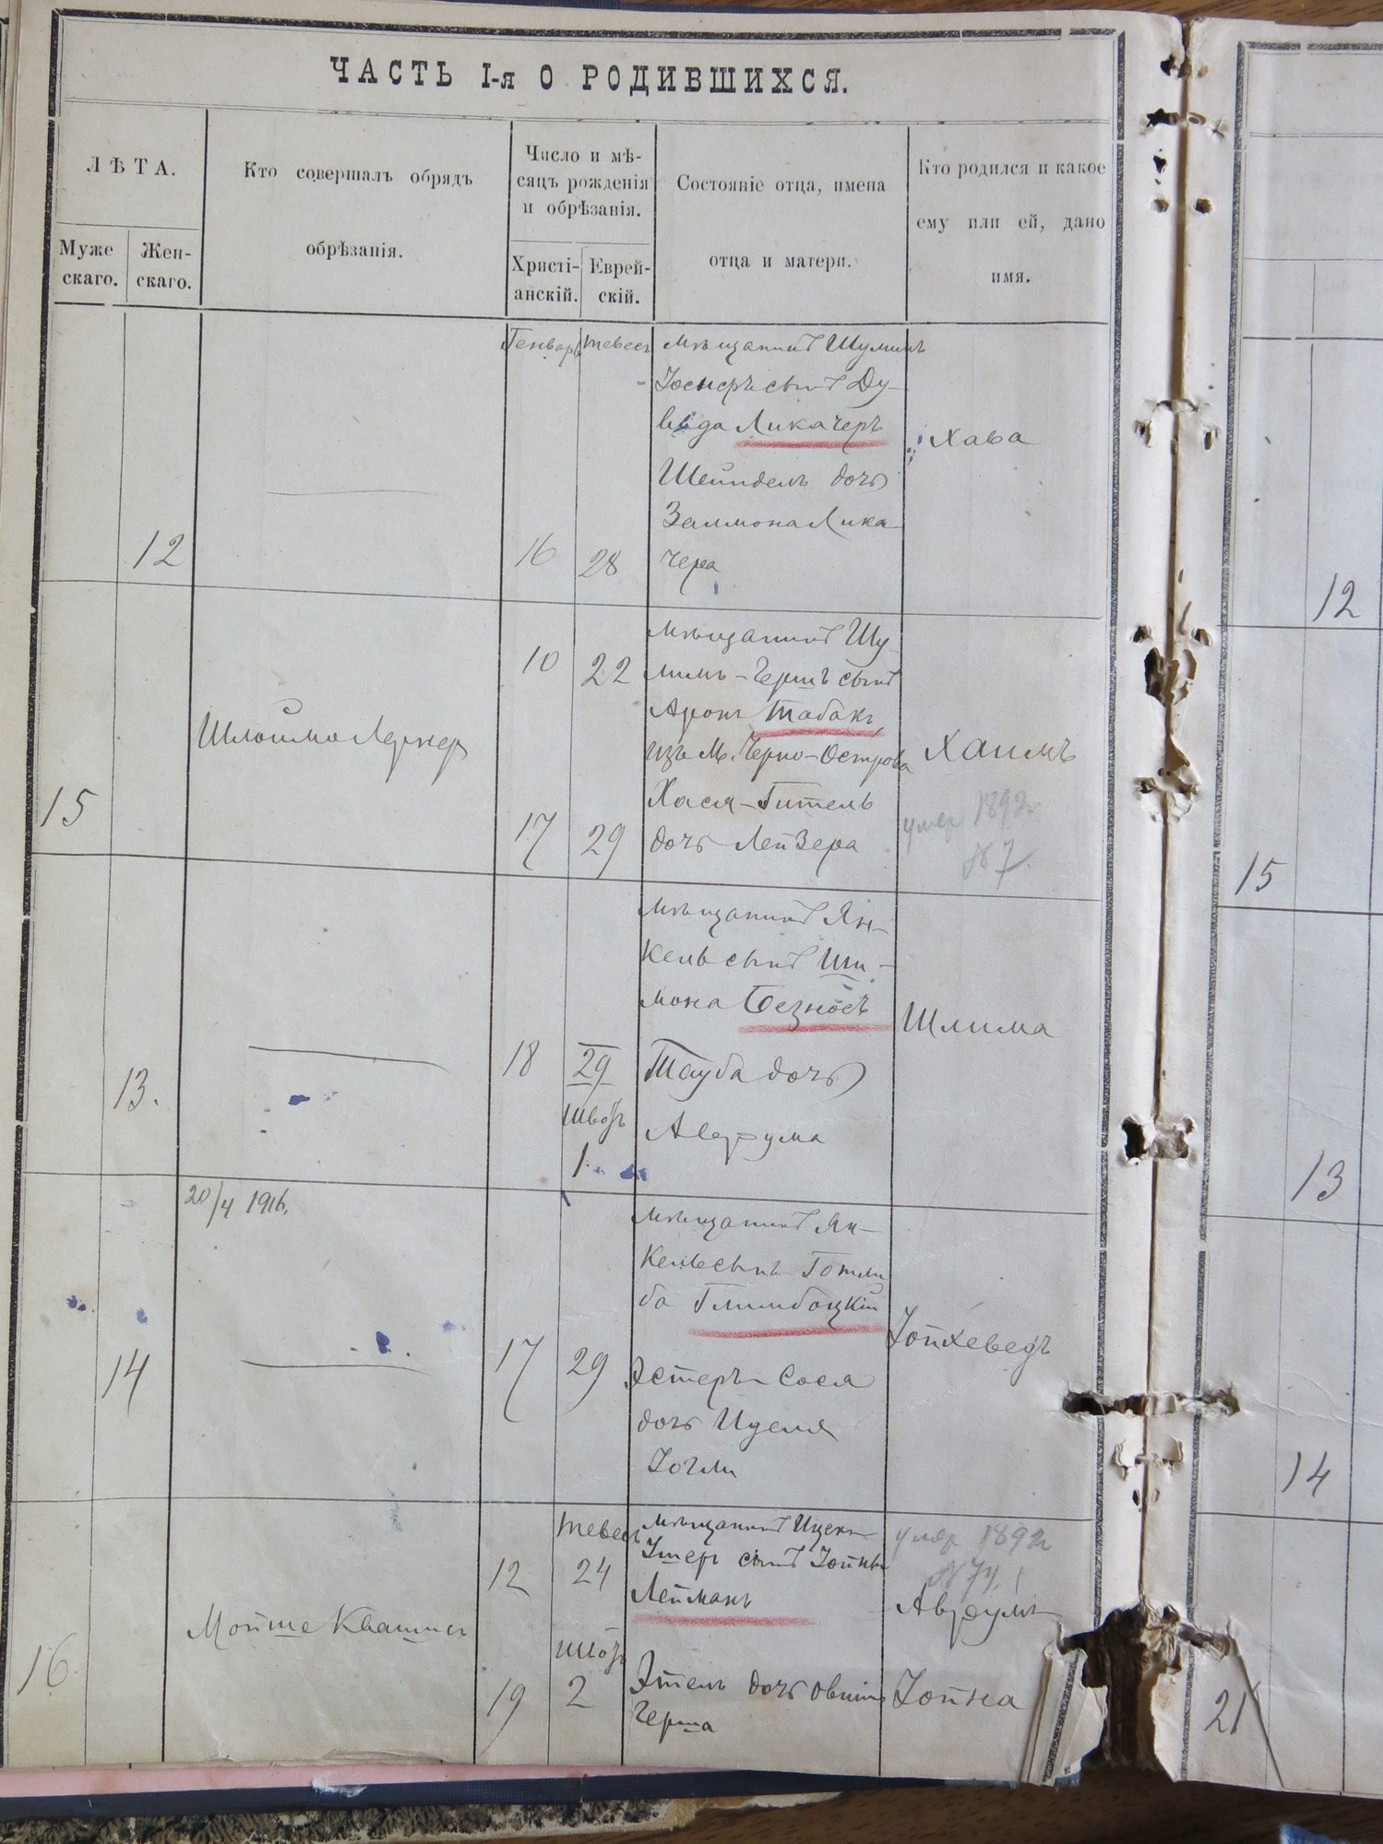 ЧАСТЬ I-я О РОДИВШИХСЯ.
ЛѢТА.
Муже
скаго.
Жен-
скаго.
Кто совершалъ обрядъ
обрѣзанія.
Число и мѣ-
сяцъ рожденія
и обрѣзанія.
Христі-
анскій.
Еврей-
скій.
Состояніе отца, имена
отца и матери.
Кто родился и какое
ему или ей, дано
имя.
12
Генварь
16
тевесъ
28
мѣщанинъ Шулимъ
Іосперъ сынъ Ду-
вида Ликачеръ
Шейндель дочь
Залмона Лика
чера
Хава
12
15
Шлойма Лернер
10
17
22
29
мѣщанинъ Шу
лимъ-Гершъ сынъ
Аронъ Табакъ,
изъ М. Черно-Острова
Хася-Гитель
дочь Лейзера
Хаимъ
умер 1892г
№ 7.
15
13.
18
29
швот
1
мѣщанинъ Ян-
кель сынъ Ши-
мона Безносъ
Тауба дочь
Аврума
Шлима
13
20/4 1916.
14
17
29
мѣщанинъ Ян-
кель сынъ Готли
ба Глимбоцкій
Эстеръ-Сося
дочь Иделя
Іогли
Іойхеведъ
14
16.
Мойше Квашинъ
12
19
тевесъ
24
швот
2
мѣщанинъ Ицекъ
сынъ Іойны
Лейманъ
Этель дочь Овшія
Герша
умер 1892г
Аврумъ
Іойна
21